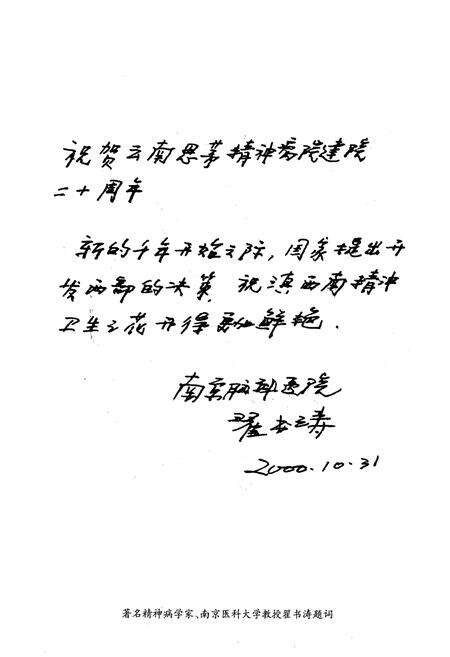 祝贺云南思茅精神病院建院
二十周年
新的千年开始之际，国家提出开
发西部的决策，祝滇西南精神
卫生之花开得更加鲜艳．
南京脑科医院
翟书涛
2000.10.31
著名精神病学家、南京医科大学教授翟书涛题词